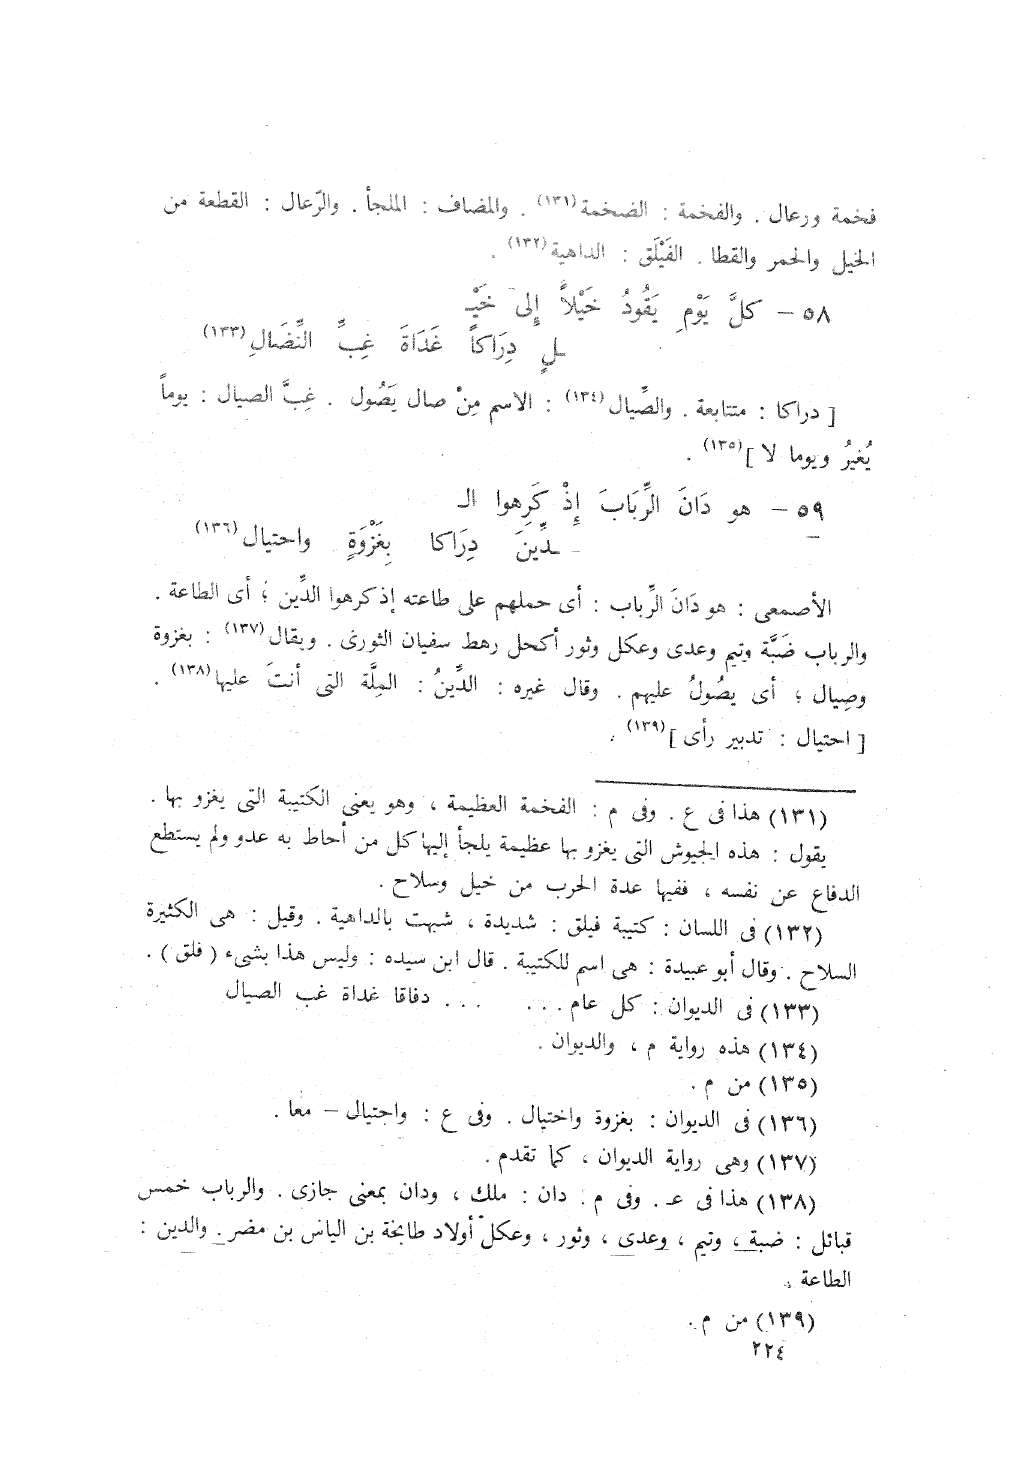 فخمة ورعال . والفخمة : الضخمة(١٣١) . والمضاف : الملجأ . والرّعال : القطعة من
الخيل والحمر والقطا . الفَيْلَق : الداهية(١٣٢) .
٥٨ – كلَّ يَوْمٍ يَقُودُ خَيْلاً إِلى خَيْـ
ـلٍ دِرَاكاً غَدَاةَ غِبِّ النِّضَالِ(١٣٣)
[ دراكا : متتابعة . والصِّيال(١٣٤) : الاسم مِنْ صال يَصُول . غِبَّ الصيال : يوماً
يُغيرُ ويوما لا ](١٣٥) .
٥٩ – هو دَانَ الرِّبَابَ إِذْ كَرِهوا الـ
ـدِّينَ دِرَاكا بِغَزْوَةٍ واحتيال(١٣٦)
الأصمعى : هو دَانَ الرِّباب : أى حملهم على طاعته إذ كرهوا الدِّين ؛ أى الطاعة .
والرباب ضَبَّة وتيم وعدى وعكل وثور أكحل رهط سفيان الثورى . ويقال(١٣٧) : بغزوة
وصِيال ؛ أى يصُولُ عليهم . وقال غيره : الدِّينُ : المِلَّة التى أنتَ عليها(١٣٨) .
[ احتيال : تدبير رأى ](١٣٩) .
(١٣١) هذا فى ع . وفى م : الفخمة العظيمة ، وهو يعنى الكتيبة التى يغزو بها .
يقول : هذه الجيوش التى يغزو بها عظيمة يلجأ إليها كل من أحاط به عدو ولم يستطع
الدفاع عن نفسه ، ففيها عدة الحرب من خيل وسلاح .
(١٣٢) فى اللسان : كتيبة فيلق : شديدة ، شبهت بالداهية . وقيل : هى الكثيرة
السلاح . وقال أبو عبيدة : هى اسم للكتيبة . قال ابن سيده : وليس هذا بشىء ( فلق ) .
(١٣٣) فى الديوان : كل عام . . . . . . . دفاقا غداة غب الصيال
(١٣٤) هذه رواية م ، والديوان .
(١٣٥) من م .
(١٣٦) فى الديوان : بغزوة واختيال . وفى ع : واجتيال – معا .
(١٣٧) وهى رواية الديوان ، كما تقدم .
(١٣٨) هذا فى عـ . وفى م : دان : ملك ، ودان بمعنى جازى . والرباب خمس
قبائل : ضبة ، وتيم ، وعدى ، وثور ، وعكل أولاد طابخة بن الياس بن مضر . والدين :
الطاعة .
(١٣٩) من م .
٢٢٤